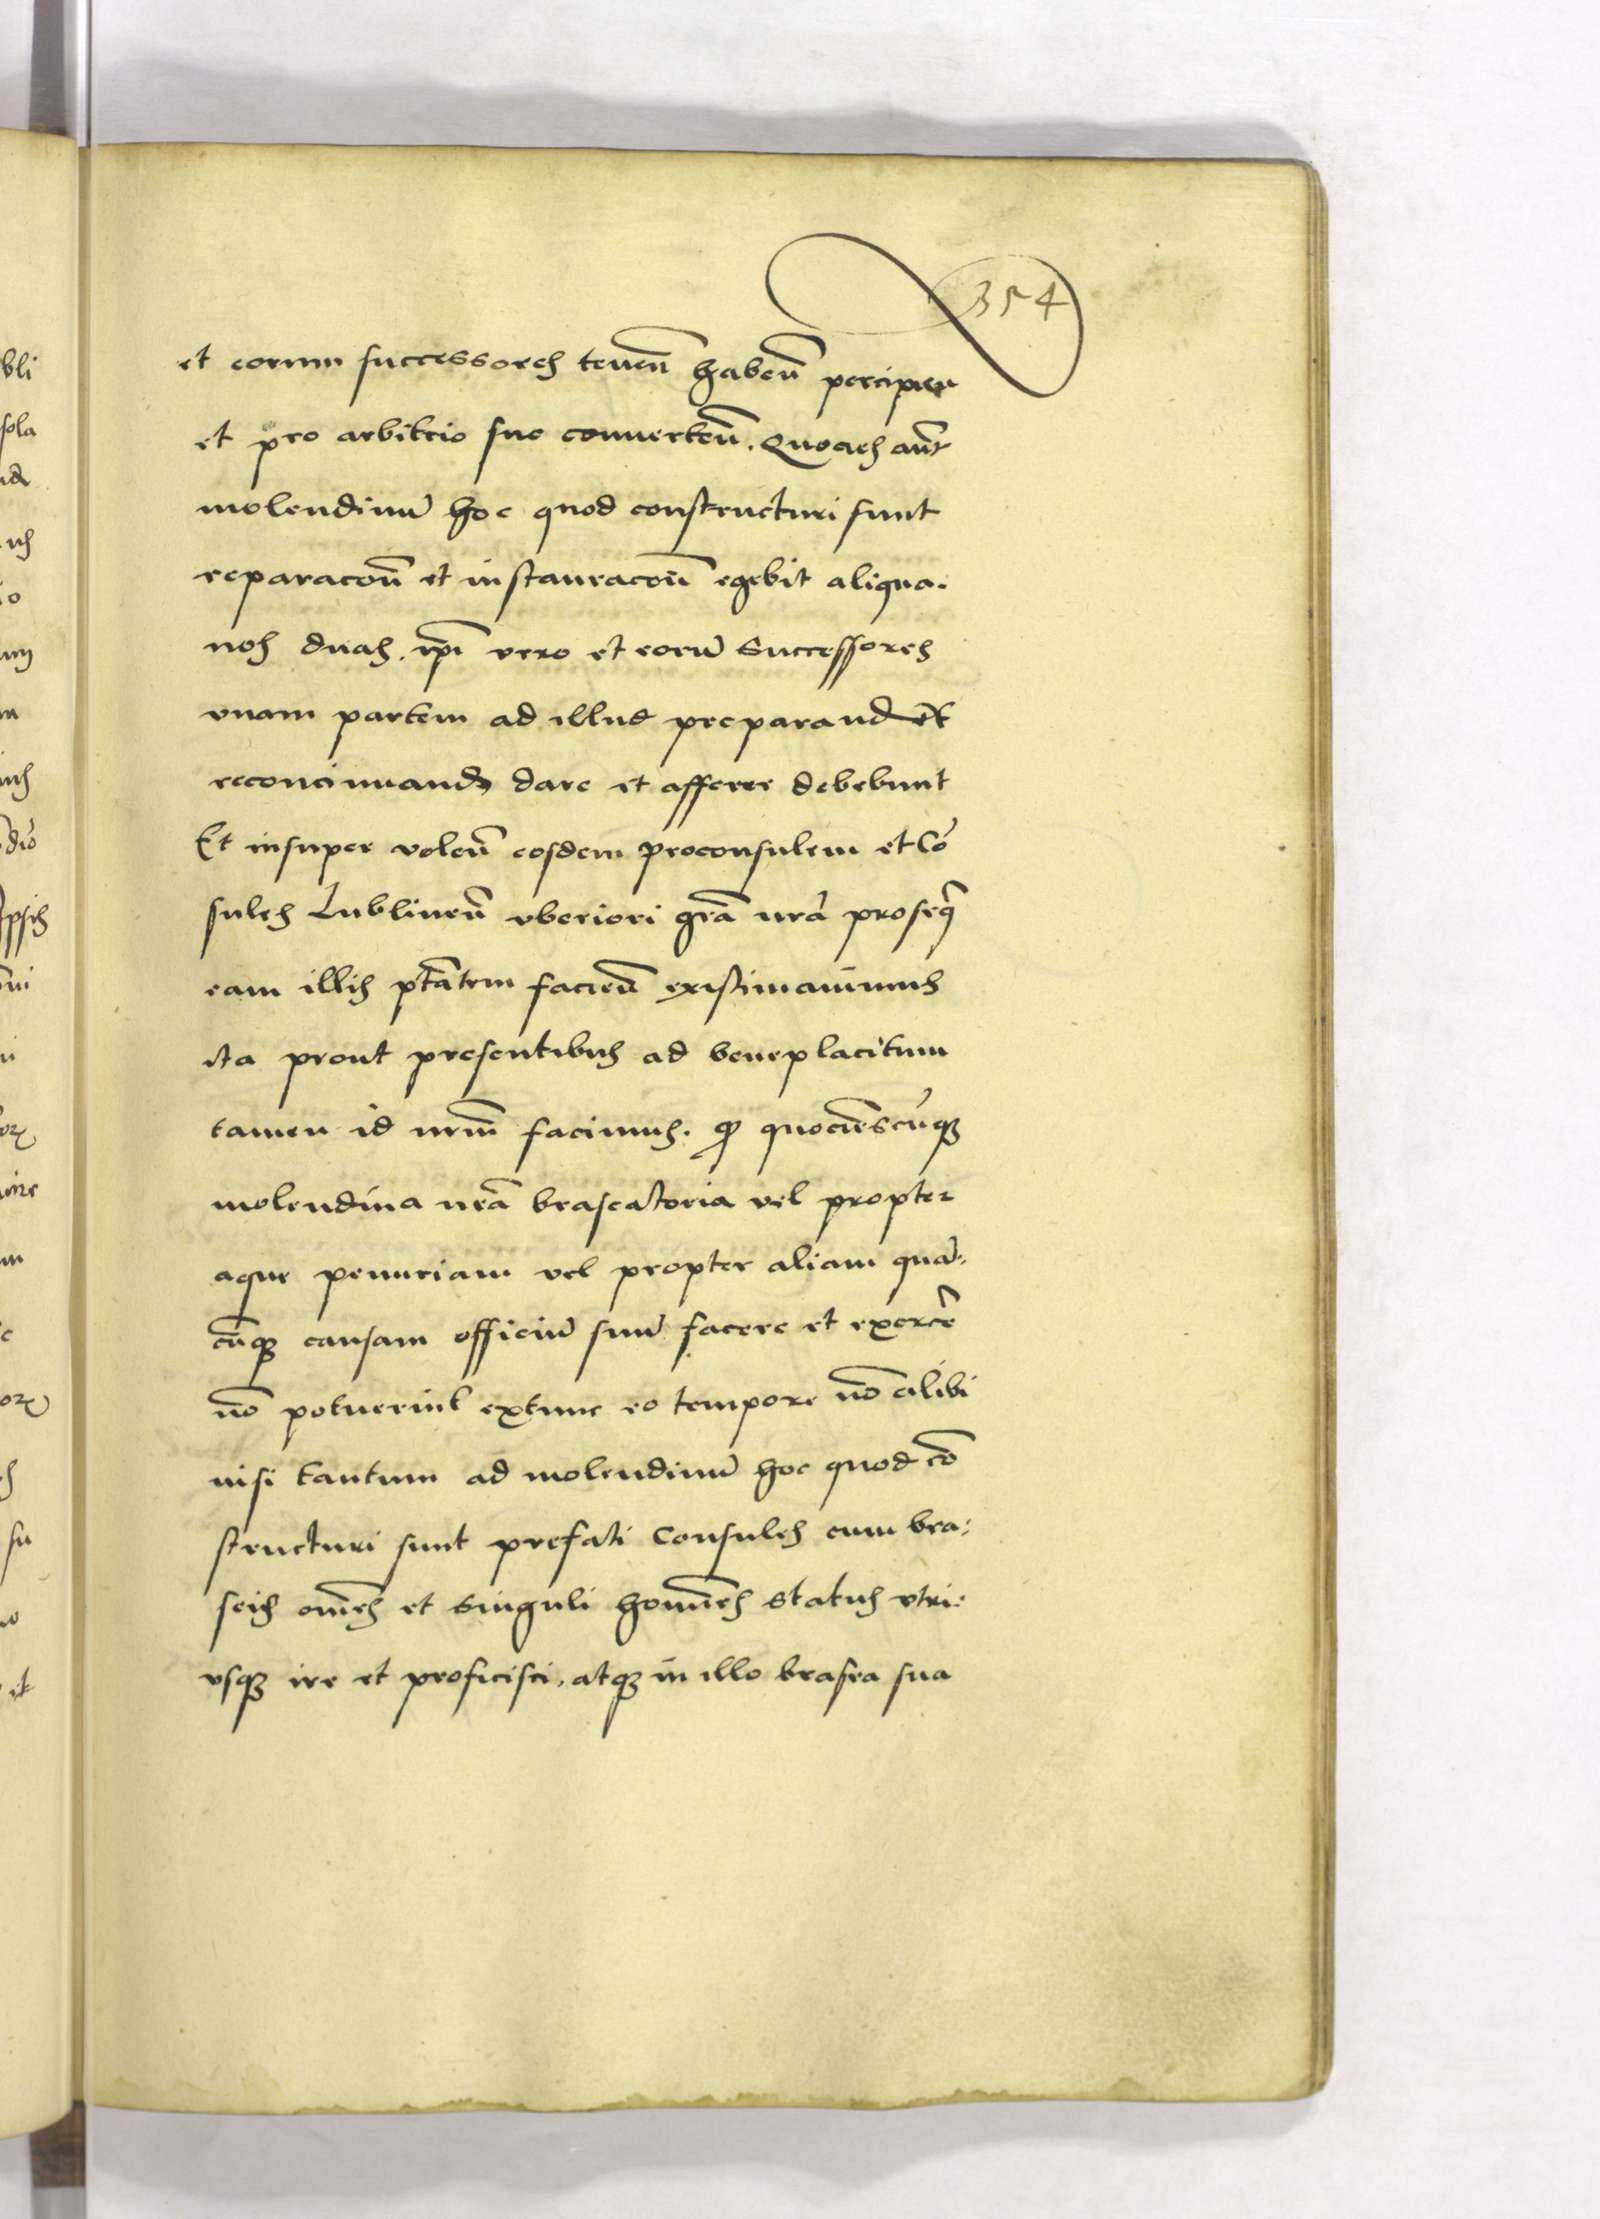 354
et eorum successores tenen̄ haben̄ percipien
et pro arbitrio suo conuerten̄. Quocies aūt
molendinū hoc quod constructuri sunt
reparacōn̄ et instauracōn̄ egebit aliqua.
nos duas. ip̄i vero et eorū Successores
vnam partem ad illud preparand et
reconcinnand dare et afferre debebunt
Et insuper volen̄ eosdem proconsulem et Cō
sules Lublinen̄ vberiori gr̄a nr̄a proseq̄
eam illis pt̄atem facien̄ existimauimus
ita prout presentibus ad beneplacitum
tamen id nr̄m facimus. ꝙ quociēscūqꝫ
molendina nr̄a braseatoria vel propter
aque penuriam vel propter aliam quā:
cūqꝫ causam officiū suū facere et exercē
nō potuerint extunc eo tempore nō alibi
nisi tantum ad molendinū hoc quod cō
structuri sunt prefati Consules cum bra:
seis om̄es et Singuli homīes status vtri:
vsqꝫ ire et proficisci, atqꝫ in illo brasea sua
bli
sola
us
io
dıō
ipsis
orꝝ
su
et